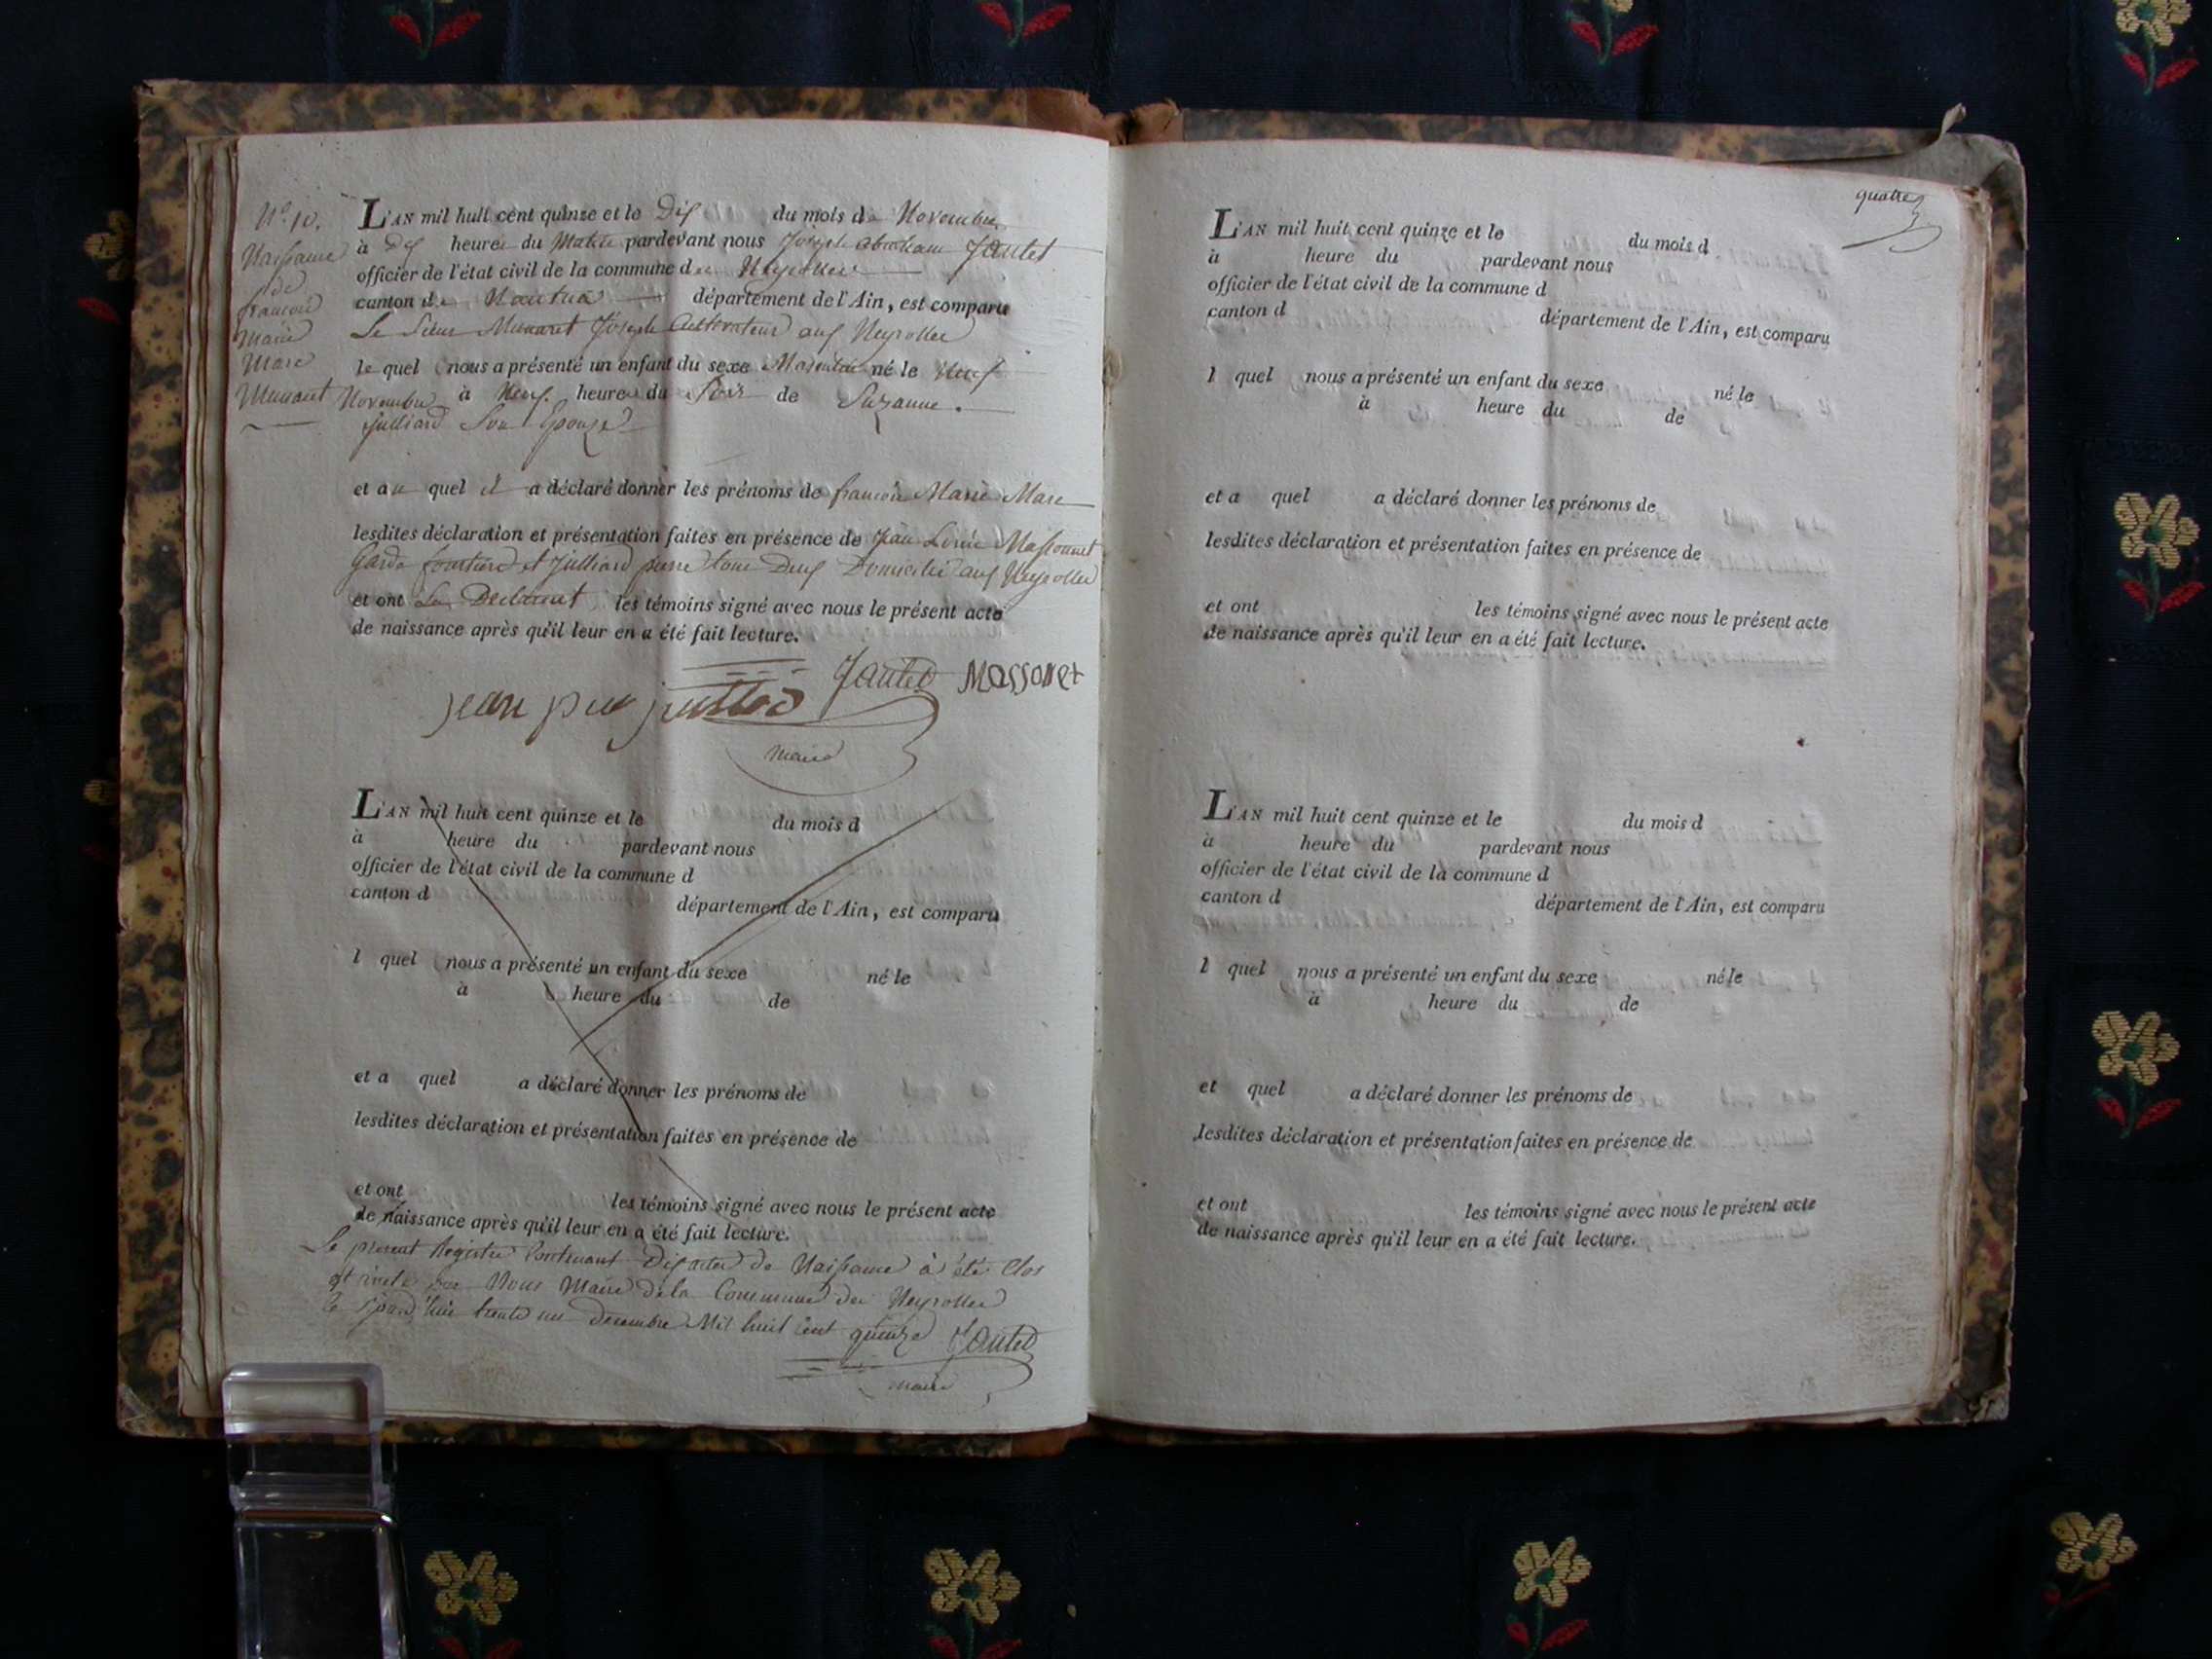 N.º 10.
Naissance
de
francois
Marie
Marc
Munaret
L'AN mil huit cent quinze et le Dix du mois de Novembre
à Dix heures du Matin pardevant nous Joseph abraham Jantet
officier de l'état civil de la commune des Neyrolles
canton de Nantua département de l'Ain, est comparu
Le Sieur Munaret Joseph Cultivateur aux Neyrolles
le quel nous a présenté un enfant du sexe Masculin né le Neuf
Novembre à Neuf heures du Soir de Suzanne
Julliard Son Epouse
et au quel il a déclaré donner les prénoms de francois Marie Marc
lesdites déclaration et présentation faites en présence de Jean Massonnet
Garde forestier et Julliard pierre tous Deux Domiciliés aux Neyrolles
et ont les témoins signé avec nous le présent acte
de naissance après qu'il leur en a été fait lecture.
Jantet Massonet
jean
maire
L'AN mil huit cent quinze et le du mois d
à heure du pardevant nous
officier de l'état civil de la commune d
canton d département de l'Ain, est comparu
l quel nous a présenté un enfant du sexe né le
à heure du de
et a quel a déclaré donner les prénoms de
lesdites déclaration et présentation faites en présence de
et ont les témoins signé avec nous le présent acte
de naissance après qu'il leur en a été fait lecture.
Le present Registre Contenant Dix actes de Naissance à été Clos
et arreté par Nous Maire de la Commune des Neyrolles
le jourd'hui trente un decembre Mil huit cent quinze Jantet
maire
quatre
L'AN mil huit cent quinze et le du mois d
à heure du pardevant nous
officier de l'état civil de la commune d
canton d département de l'Ain, est comparu
l quel nous a présenté un enfant du sexe né le
à heure du de
et a quel a déclaré donner les prénoms de
lesdites déclaration et présentation faites en présence de
et ont les témoins signé avec nous le présent acte
de naissance après qu'il leur en a été fait lecture.
L'AN mil huit cent quinze et le du mois d
à heure du pardevant nous
officier de l'état civil de la commune d
canton d département de l'Ain, est comparu
l quel nous a présenté un enfant du sexe né le
à heure du de
et quel a déclaré donner les prénoms de
lesdites déclaration et présentation faites en présence de
et ont les témoins signé avec nous le présent acte
de naissance après qu'il leur en a été fait lecture.